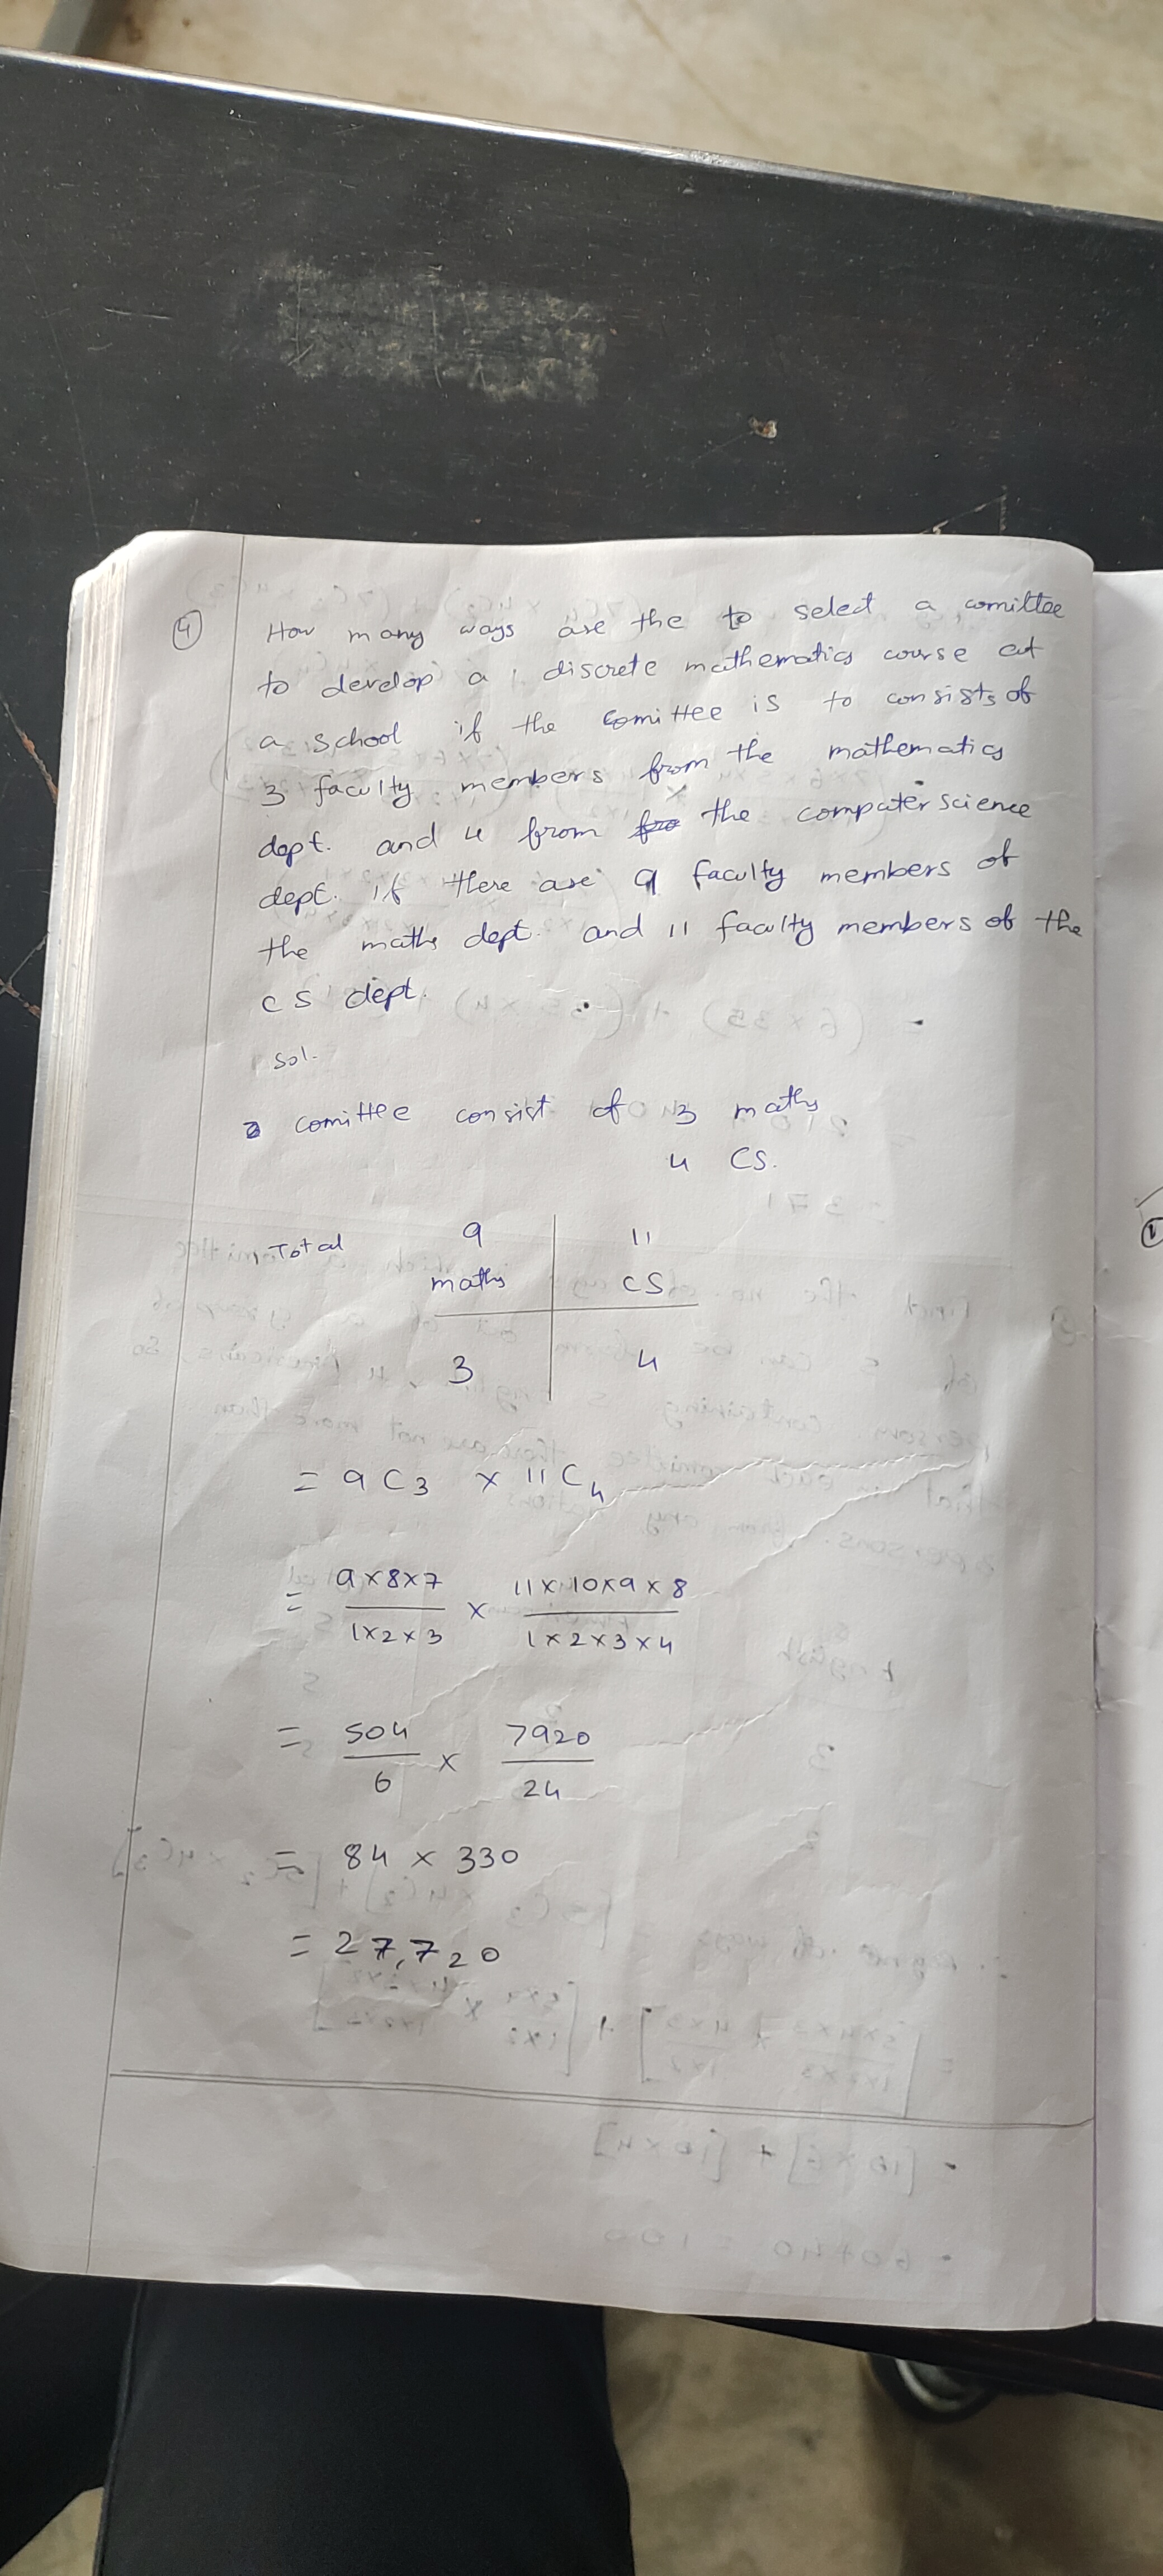 4 How many ways are the to select a comittee
to develop a discrete mathematics course at
a school if the comittee is to consists of
3 faculty members from the mathematics
dept. and 4 from the computer science
dept. if there are 9 faculty members of
the maths dept. and 11 faculty members of the
CS dept.
Sol.
comittee consist of 3 maths
4 CS.
Total 9 11
maths CS
3 4
= 9C3 × 11C4
= 9×8×7 / 1×2×3 × 11×10×9×8 / 1×2×3×4
= 504 / 6 × 7920 / 24
= 84 × 330
= 27,720